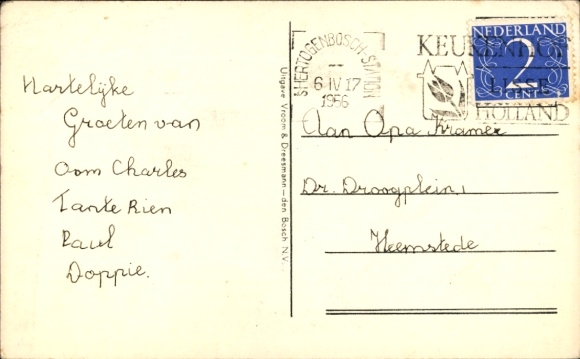 Hartelijke
Groeten van
Oom Charles
Tante Rien
Paul
Doppie.
Uitgave Vroom & Dreesmann — den Bosch N.V.
'SHERTOGENBOSCH-STATION
6 IV 17
1956
KEUKENHOF
LISSE
HOLLAND
NEDERLAND
2
CENT
Aan Opa Kramer
Dr. Droogplein,
Heemstede